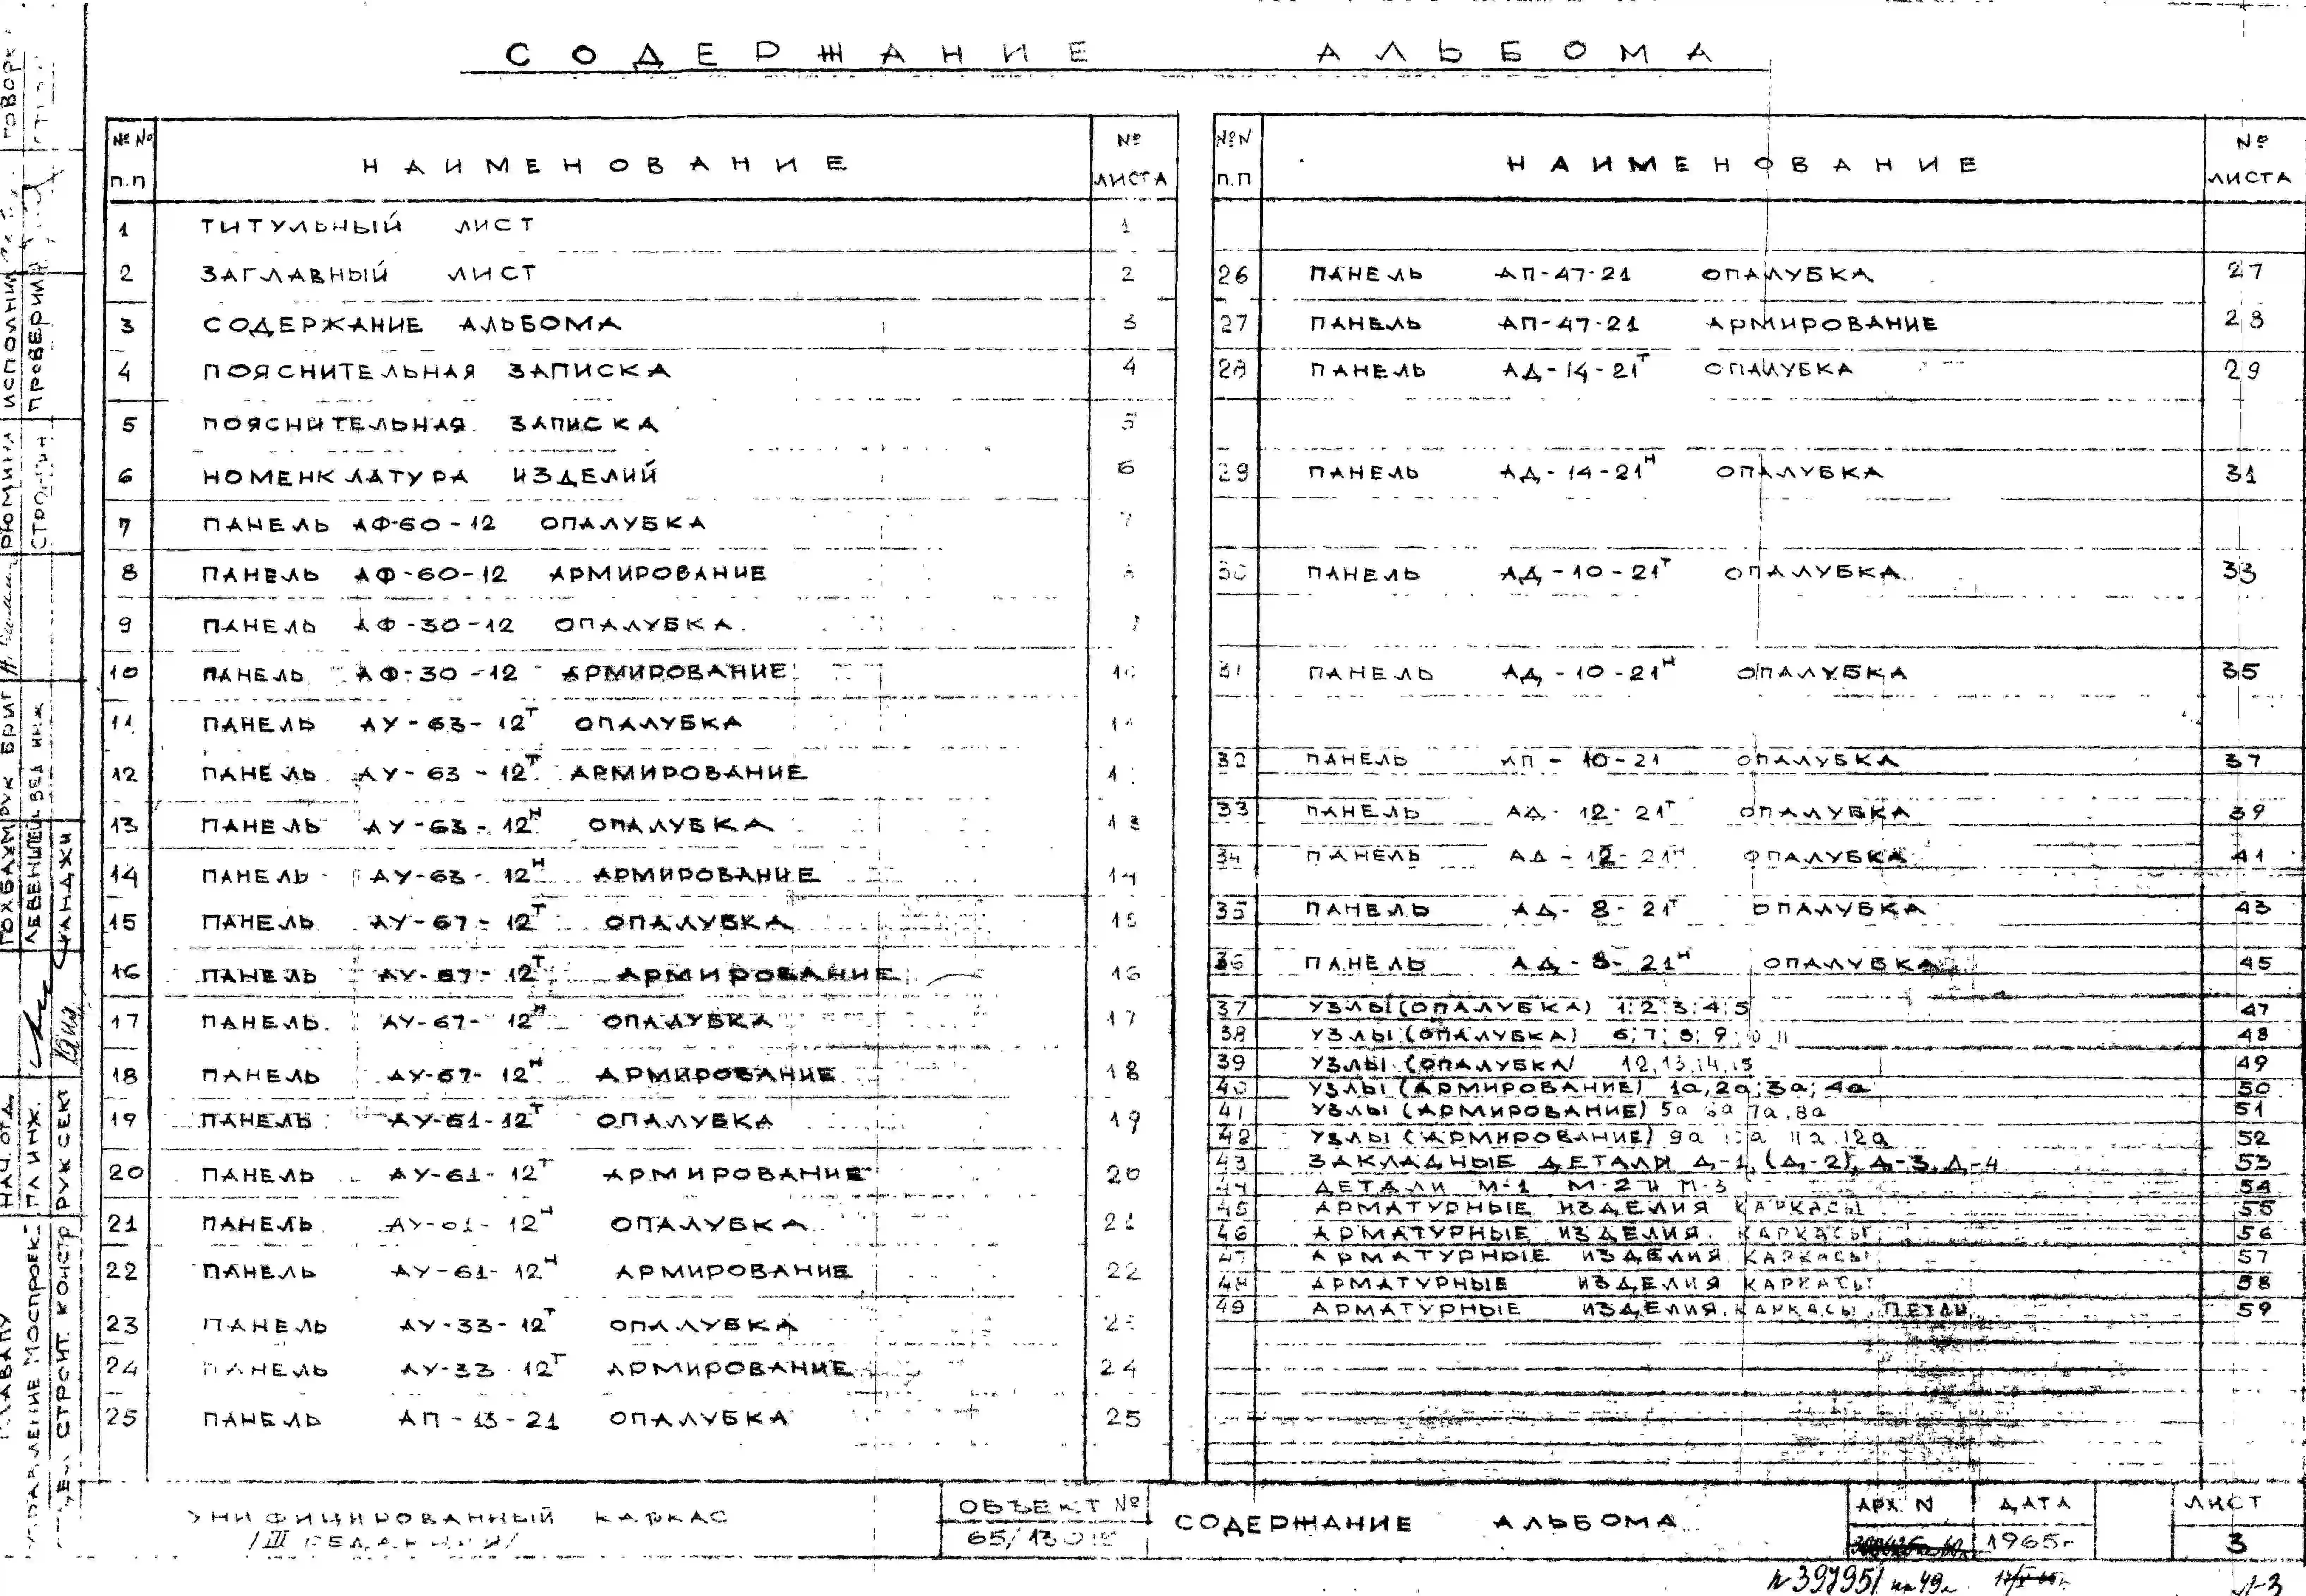 СОДЕРЖАНИЕ АЛЬБОМА
№ № п.п НАИМЕНОВАНИЕ № ЛИСТА
1 ТИТУЛЬНЫЙ ЛИСТ 1
2 ЗАГЛАВНЫЙ ЛИСТ 2
3 СОДЕРЖАНИЕ АЛЬБОМА 3
4 ПОЯСНИТЕЛЬНАЯ ЗАПИСКА 4
5 ПОЯСНИТЕЛЬНАЯ ЗАПИСКА 5
6 НОМЕНКЛАТУРА ИЗДЕЛИЙ 6
7 ПАНЕЛЬ АФ-60-12 ОПАЛУБКА 7
8 ПАНЕЛЬ АФ-60-12 АРМИРОВАНИЕ
9 ПАНЕЛЬ АФ-30-12 ОПАЛУБКА
10 ПАНЕЛЬ АФ-30-12 АРМИРОВАНИЕ 10
11 ПАНЕЛЬ АУ-63-12Т ОПАЛУБКА
12 ПАНЕЛЬ АУ-63-12Т АРМИРОВАНИЕ
13 ПАНЕЛЬ АУ-63-12Н ОПАЛУБКА 13
14 ПАНЕЛЬ АУ-63-12Н АРМИРОВАНИЕ 14
15 ПАНЕЛЬ АУ-67-12Т ОПАЛУБКА 15
16 ПАНЕЛЬ АУ-67-12Т АРМИРОВАНИЕ 16
17 ПАНЕЛЬ АУ-67-12Н ОПАЛУБКА 17
18 ПАНЕЛЬ АУ-67-12Н АРМИРОВАНИЕ 18
19 ПАНЕЛЬ АУ-61-12Т ОПАЛУБКА 19
20 ПАНЕЛЬ АУ-61-12Т АРМИРОВАНИЕ 20
21 ПАНЕЛЬ АУ-61-12Н ОПАЛУБКА 21
22 ПАНЕЛЬ АУ-61-12Н АРМИРОВАНИЕ 22
23 ПАНЕЛЬ АУ-33-12Т ОПАЛУБКА 23
24 ПАНЕЛЬ АУ-33-12Т АРМИРОВАНИЕ 24
25 ПАНЕЛЬ АП-13-21 ОПАЛУБКА 25
№ N п.п НАИМЕНОВАНИЕ № ЛИСТА
26 ПАНЕЛЬ АП-47-21 ОПАЛУБКА 27
27 ПАНЕЛЬ АП-47-21 АРМИРОВАНИЕ 28
28 ПАНЕЛЬ АД-14-21Т ОПАЛУБКА 29
29 ПАНЕЛЬ АД-14-21Н ОПАЛУБКА 31
30 ПАНЕЛЬ АД-10-21Т ОПАЛУБКА 33
31 ПАНЕЛЬ АД-10-21Н ОПАЛУБКА 35
32 ПАНЕЛЬ АП-10-21 ОПАЛУБКА 37
33 ПАНЕЛЬ АД-12-21Т ОПАЛУБКА 39
34 ПАНЕЛЬ АД-12-21Н ОПАЛУБКА 41
35 ПАНЕЛЬ АД-8-21Т ОПАЛУБКА 43
36 ПАНЕЛЬ АД-8-21Н ОПАЛУБКА 45
37 УЗЛЫ (ОПАЛУБКА) 1; 2; 3; 4; 5 47
38 УЗЛЫ (ОПАЛУБКА) 6; 7; 8; 9 10 11 48
39 УЗЛЫ (ОПАЛУБКА) 12, 13, 14, 15 49
40 УЗЛЫ (АРМИРОВАНИЕ) 1а, 2а; 3а; 4а 50
41 УЗЛЫ (АРМИРОВАНИЕ) 5а 6а 7а, 8а 51
42 УЗЛЫ (АРМИРОВАНИЕ) 9а 10а 11а 12а 52
43 ЗАКЛАДНЫЕ ДЕТАЛИ Д-1, (Д-2), Д-3, Д-4 53
44 ДЕТАЛИ М-1 М-2 И М-3 54
45 АРМАТУРНЫЕ ИЗДЕЛИЯ КАРКАСЫ 55
46 АРМАТУРНЫЕ ИЗДЕЛИЯ. КАРКАСЫ 56
47 АРМАТУРНЫЕ ИЗДЕЛИЯ. КАРКАСЫ 57
48 АРМАТУРНЫЕ ИЗДЕЛИЯ КАРКАСЫ 58
49 АРМАТУРНЫЕ ИЗДЕЛИЯ. КАРКАСЫ, ПЕТЛИ 59
УНИФИЦИРОВАННЫЙ КАРКАС
/III РЕДАКЦИЯ/
ОБЪЕКТ №
СОДЕРЖАНИЕ АЛЬБОМА
АРХ. N ДАТА ЛИСТ
1965г 3
N 397951
УПРАВЛЕНИЕ МОСПРОЕКТ
СТРОИТ. КОНСТР
НАЧ. ОТД.
ГЛ ИНЖ.
РУК СЕКТ
ГОХБАУМ РУК БРИГ
ЛЕВЕНШТЕЙН ВЕД ИНЖ
РЮМИНА ИСПОЛНИЛ
СТРОГИН ПРОВЕРИЛ